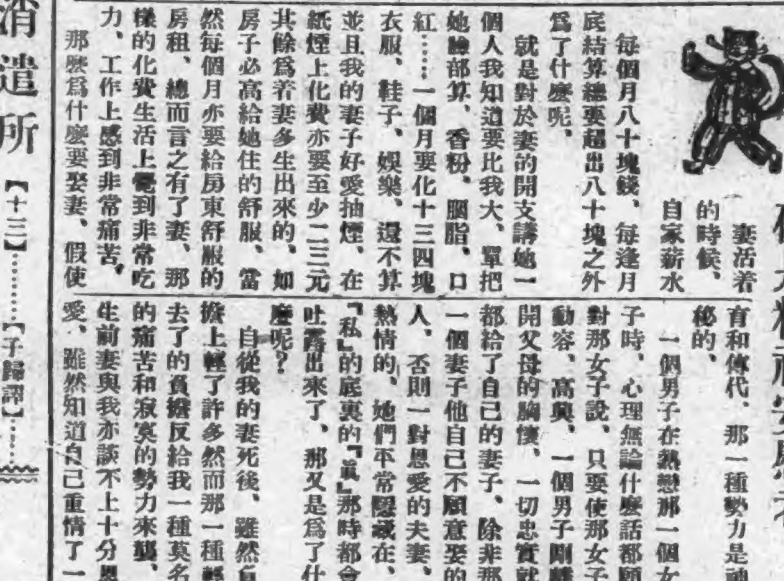 妻活着
的時候、
自家薪水
每個月八十塊錢、每逢月
底結算總要超出八十塊之外
爲了什麼呢、
就是對於妻的開支講她一
個人我知道要比我大、單把
她臉部算、香粉、胭脂、口
紅……一個月要化十三四塊
衣服、鞋子、娛樂、還不算
並且我的妻子好愛抽煙、在
紙煙上化費亦要至少二三元
其餘爲着妻多生出來的、如
房子必高給她住的舒服、當
然每個月亦要給房東舒服的
房租、總而言之有了妻、那
樣的化費生活上覺到非常吃
力、工作上感到非常痛苦、
那麼爲什麼要娶妻、假使
育和傳代、那一種勢力是神
秘的、
一個男子在熱戀那一個女
子時、心理無論什麼話都願
對那女子說、只要使那女子
動容、高興、一個男子剛離
開父母的胸懷、一切忠實就
都給了自己的妻子、除非那
一個妻子他自己不願意娶的
人、否則一對恩愛的夫妻、
熱情的、她們平常隱藏在、
『私』的底裏的『眞』那時都會
吐露出來了、那又是爲了什
麼呢?
自從我的妻死後、雖然負
擔上輕了許多然而那一種輕
去了的負擔反給我一種莫名
的痛苦和寂寞的勢力來襲、
生前妻與我亦談不上十分恩
愛、雖然知道自己重情了一
消遣所
【十三】………【子歸譯】……